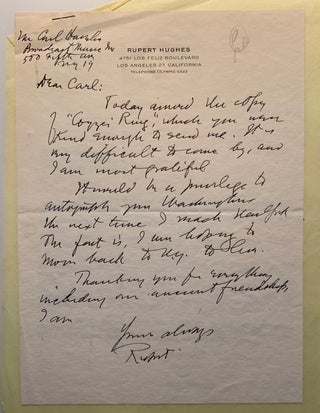 Mr Carl
Broadcast Music Inc
580 Fifth Ave
N.Y. 19
RUPERT HUGHES
4751 LOS FELIZ BOULEVARD
LOS ANGELES 27, CALIFORNIA
TELEPHONE OLYMPIC 2323
Dear Carl:
Today arrived the copy
of " Ring" which you were
kind enough to send me. It is
very difficult to come by, and
I am most grateful
It would be a privilege to
autograph your Washingtons
the next time I reach
The fact is, I am hoping to
move back to N.Y. to live.
Thanking you for everything,
including our ancient friendship,
I am
Yours always
Rupert.